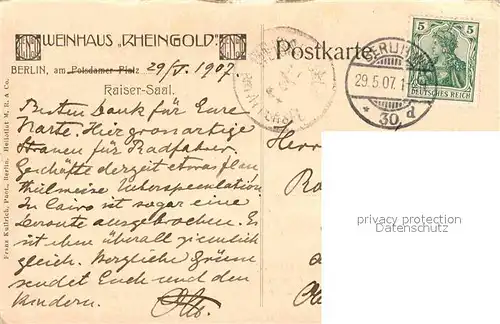 WEINHAUS „RHEINGOLD“
BERLIN, am Potsdamer Platz 29/V. 1907.
Kaiser-Saal.
Besten Dank für Eure
Karte. Hier grossartige
Strassen für Radfahrer.
Geschäfte derzeit etwas flau
theilweise Ueberspeculation.
In Cairo ist sogar eine
Deroute ausgebrochen. Es
ist eben überall ziemlich
gleich. Herzliche Grüsse
sendet Euch und den
Kindern.
Postkarte
BERLIN
29.5.07. 1
* 30. d
5 5
DEUTSCHES REICH
Herr
privacy protection
Datenschutz
Franz Kullrich, Phot., Berlin. Heliolist M. R. & Co.